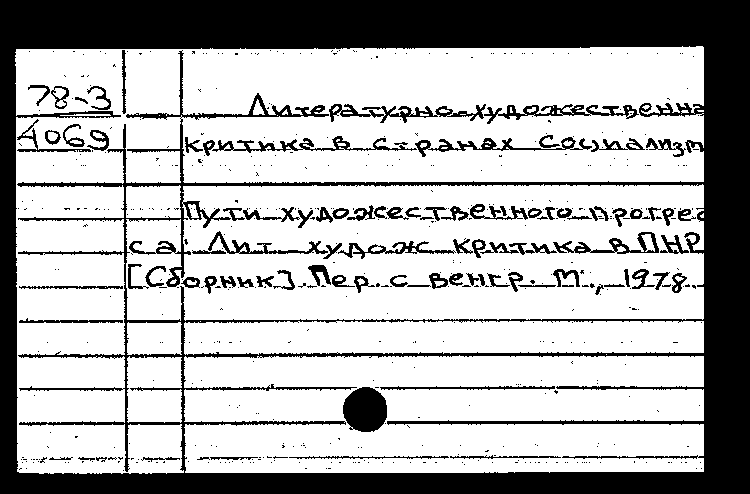 78-3
4069
Литературно-художественна
критика в странах социализм
Пути художественного прогрес
са: Лит. худож. критика в ПНР
[Сборник]. Пер. с венгр. М., 1978